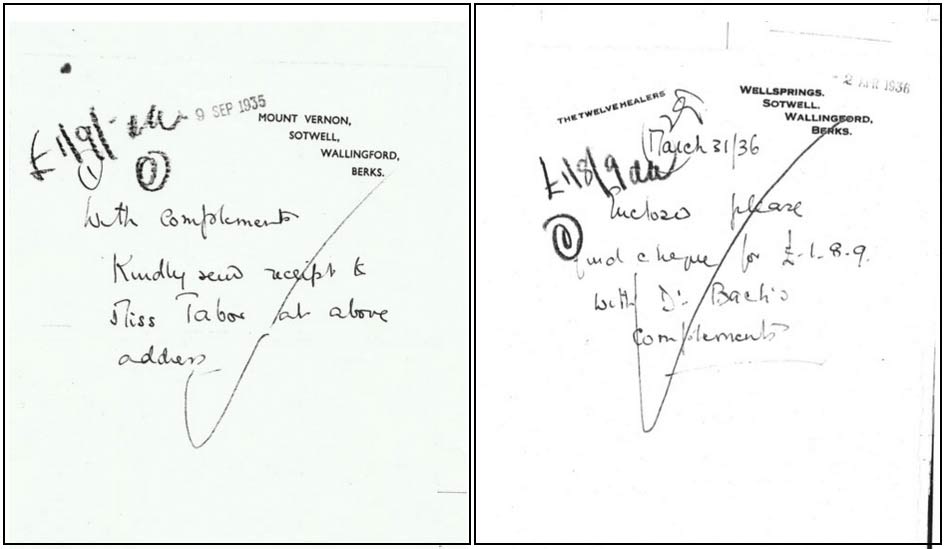 9 SEP 1935
MOUNT VERNON,
SOTWELL,
WALLINGFORD,
BERKS.
£1/9/-
With complements
Kindly send receipt to
Miss Tabor at above
address
2 APR 1936
THE TWELVE HEALERS
WELLSPRINGS.
SOTWELL.
WALLINGFORD,
BERKS.
March 31/36
£1/8/9
Enclose please
find cheque for £-1-8-9.
with Dr Bach's
complements